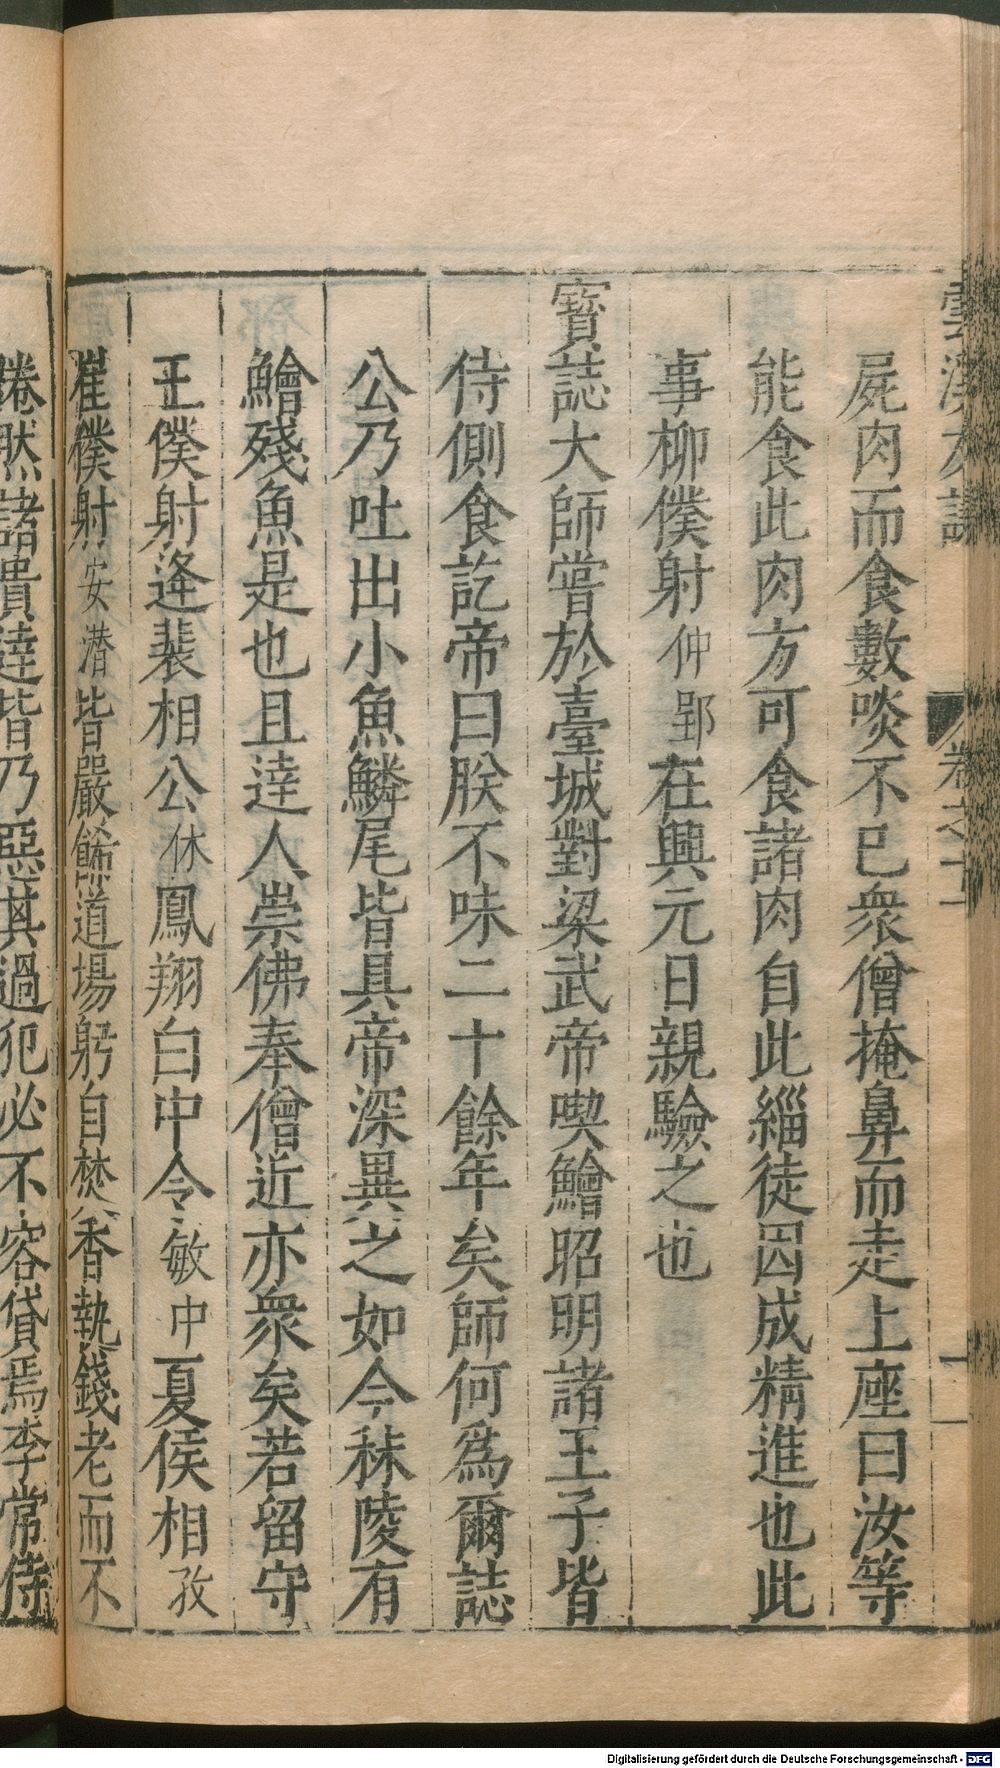 雲溪友議 卷之十一
屍肉而食數啖不已衆僧掩鼻而走上座曰汝等
能食此肉方可食諸肉自此緇徒因成精進也此
事柳僕射仲郢在興元日親驗之也
寳誌大師嘗於臺城對梁武帝喫鱠昭明諸王子皆
侍側食訖帝曰朕不味二十餘年矣師何爲爾誌
公乃吐出小魚鱗尾皆具帝深異之如今秣陵有
鱠殘魚是也且達人崇佛奉僧近亦衆矣若留守
王僕射逢裴相公休鳳翔白中令敏中夏侯相孜
崔僕射安潜皆嚴餙道場躬自焚香執錢老而不
惓然諸貴達皆乃惡其過犯必不容貸焉李常侍
Digitalisierung gefördert durch die Deutsche Forschungsgemeinschaft - DFG